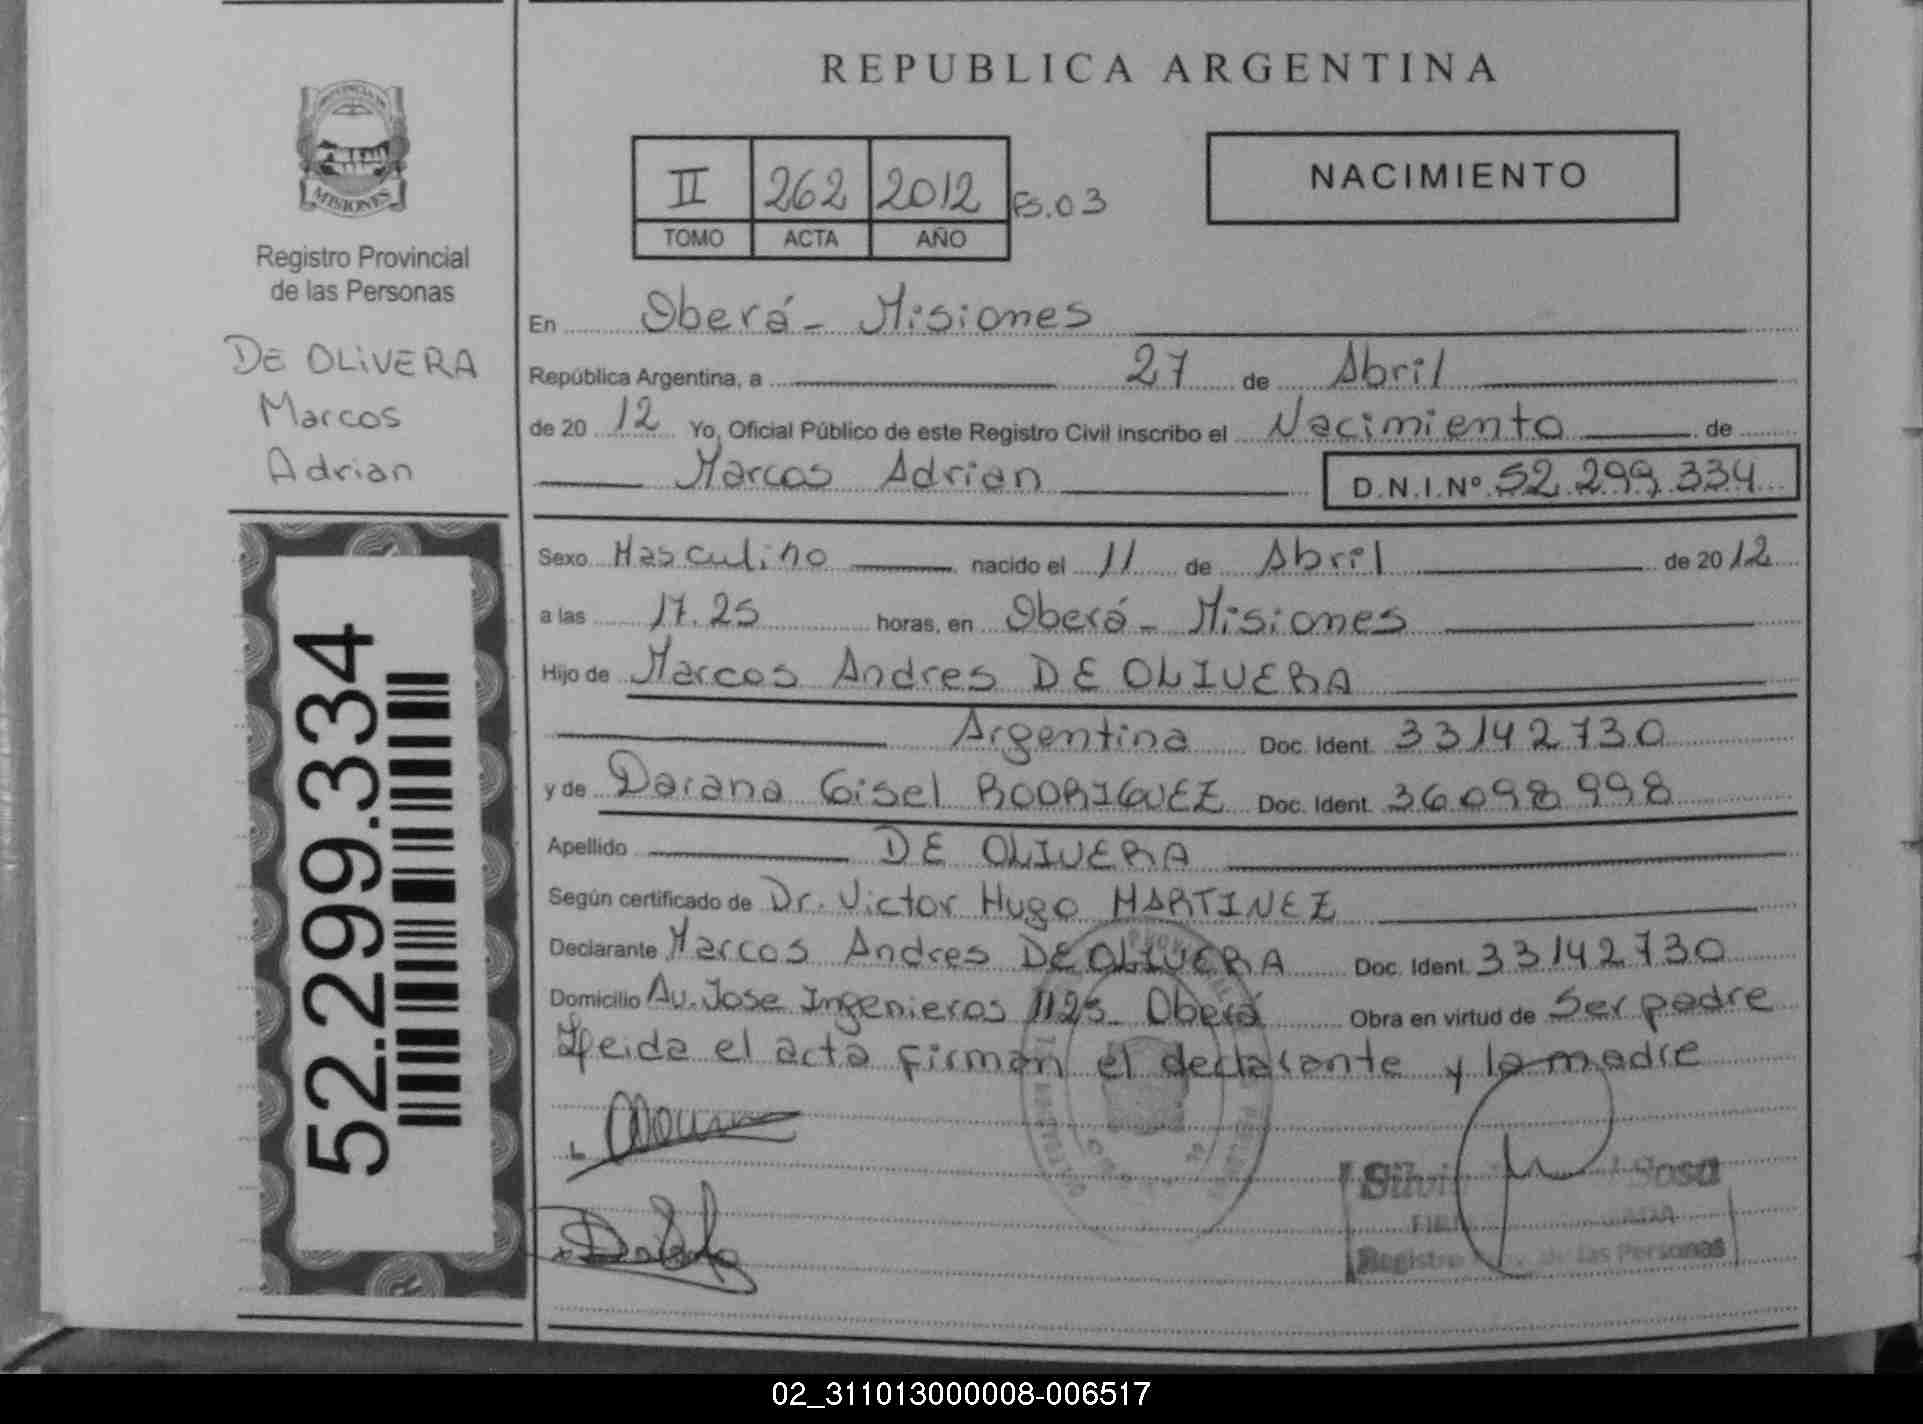 REPUBLICA ARGENTINA
PROVINCIA DE
MISIONES
Registro Provincial
de las Personas
DE OLIVERA
Marcos
Adrian
52.299.334
II 262 2012 Fs.03
TOMO ACTA AÑO
NACIMIENTO
En Oberá - Misiones
República Argentina, a 27 de Abril
de 20 12 Yo, Oficial Público de este Registro Civil inscribo el Nacimiento de
Marcos Adrian D.N.I.Nº 52.299.334
Sexo Masculino nacido el 11 de Abril de 2012
a las 17.25 horas, en Oberá - Misiones
Hijo de Marcos Andres DE OLIVERA
Argentina Doc. Ident. 33142730
y de Daiana Gisel RODRIGUEZ Doc. Ident. 36098998
Apellido DE OLIVERA
Según certificado de Dr. Victor Hugo MARTINEZ
Declarante Marcos Andres DE OLIVERA Doc. Ident. 33142730
Domicilio Av. Jose Ingenieros 1125 - Oberá Obra en virtud de Ser padre
Leida el acta firman el declarante y la madre
Sosa
Registro de las Personas
02_311013000008-006517